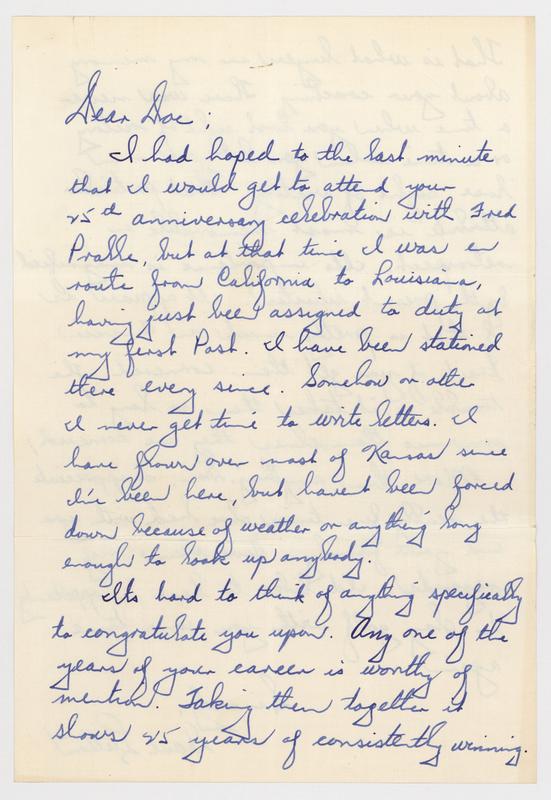 Dear Doc;
I had hoped to the last minute
that I would get to attend your
25th anniversary celebration with Fred
Pralle, but at that time I was en
route from California to Louisiana,
having just been assigned to duty at
my first Post. I have been stationed
there every since. Somehow or other
I never get time to write letters. I
have flown over most of Kansas since
I've been here, but havent been forced
down because of weather or anything long
enough to look up anybody.
Its hard to think of anything specifically
to congratulate you upon. Any one of the
years of your career is worthy of
mention. Taking them together it
shows 25 years of consistently winning.